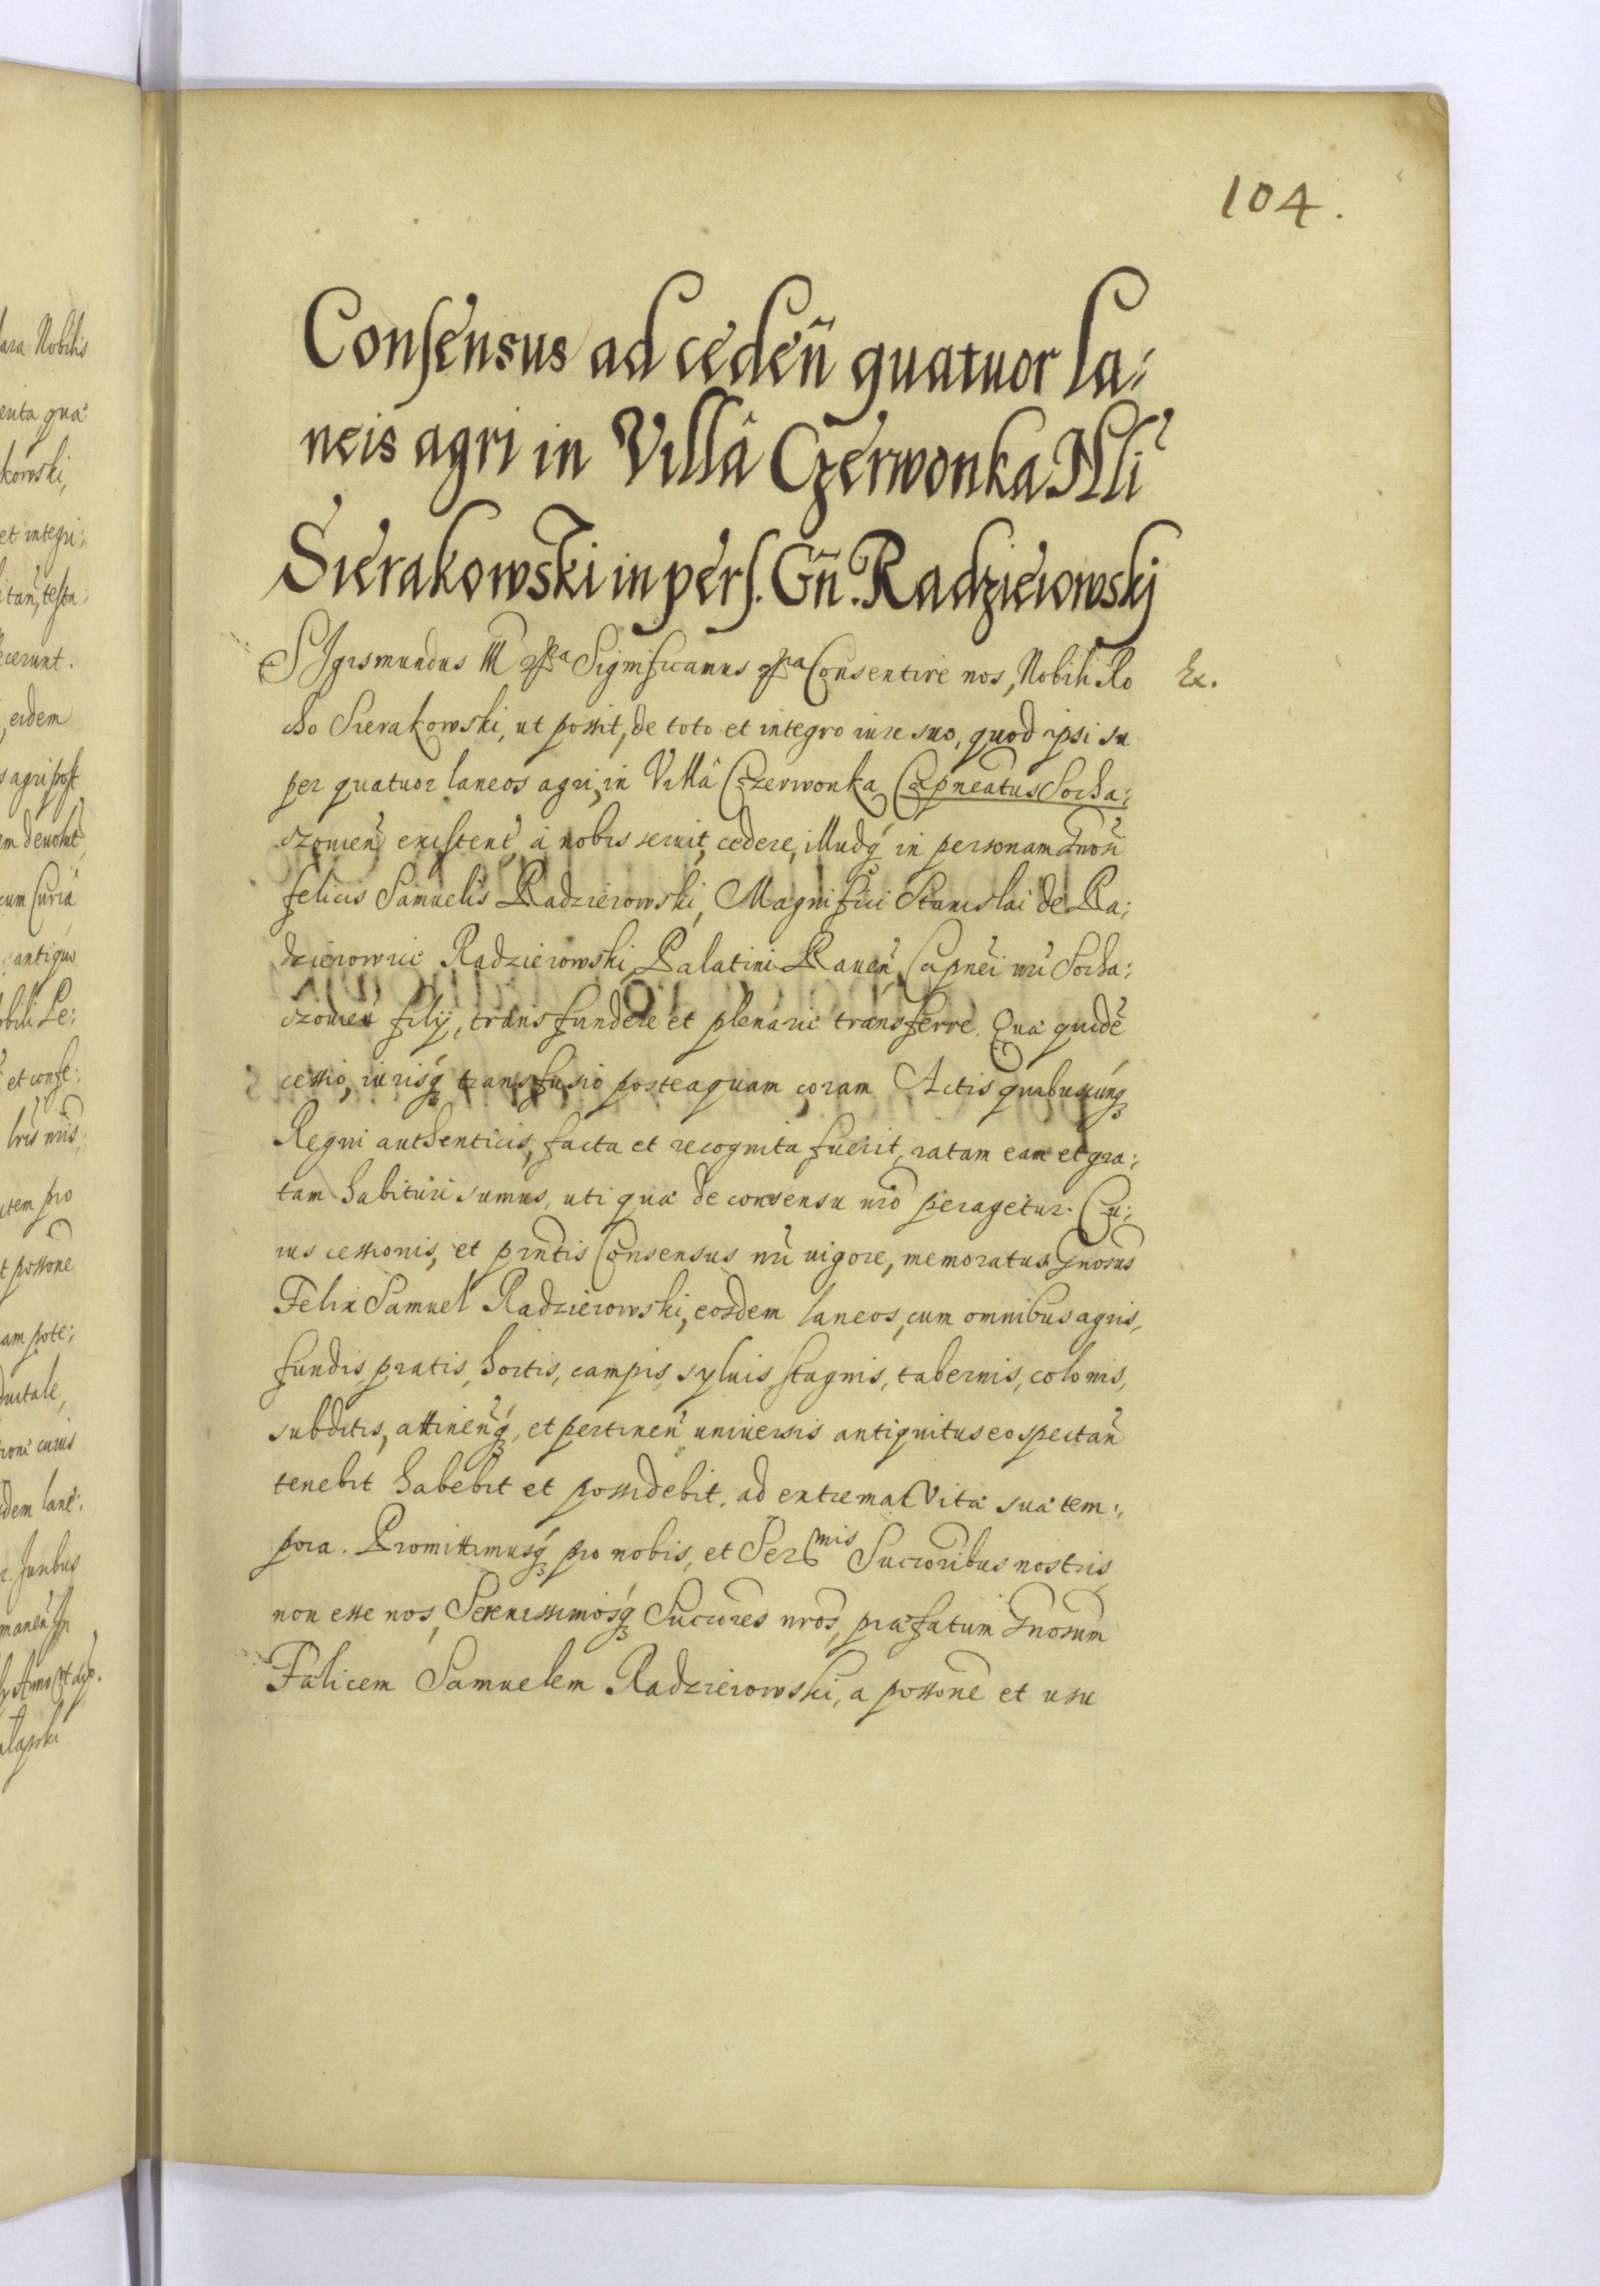 104.
Consensus ad cedeñ quatuor la:
neis agri in Villâ Czerwonka Nli
Sierakowski in pers. Gñ. Radzieiowskj
SIgismundus III Significamus Consentire nos, Nobili Ro
Ex.
cho Sierakowski, ut possit, de toto et integro iure suo, quod ipsi su
per quatuor laneos agri, in Villâ Czerwonka Capneatus Socha:
czouieñ existent à nobis seruit, cedere, illudq́ in personam Gnosi
felicis Samuelis Radzieiowski, Magnifici Stanislai de Ra:
dzieiowice Radzieiowski, Palatini Raueñ, Capnei nri Socha:
czouieñ filij, transfundere et plenarie transferre. Qua quidē
cessio, iurisq́ transfusio posteaquam coram Actis quibuscunq́
Regni authenticis, facta et recognita fuerit, ratam eam et gra:
tam habituri sumus, uti quà de consensu nro peragetur. Cu:
ius cessionis, et pñtis Consensus nri uigore, memoratus Gnosus
Felix Samuel Radzieiowski, eosdem laneos, cum omnibus agris,
fundis, pratis, hortis, campis, syluis, stagnis, tabernis, colonis,
subditis, attineñq́, et pertineñ uniuersis antiquitus eo spectañ
tenebit habebit et possidebit, ad extrema Vitæ suæ tem:
pora. Promittimusq́ pro nobis, et Ser<sup>mis</sup> Succoribus nostris
non esse nos, Serenissimosq́ Succores nros, præfatum Gnosum
Fælicem Samuelem Radzieiowski, a possone et usu